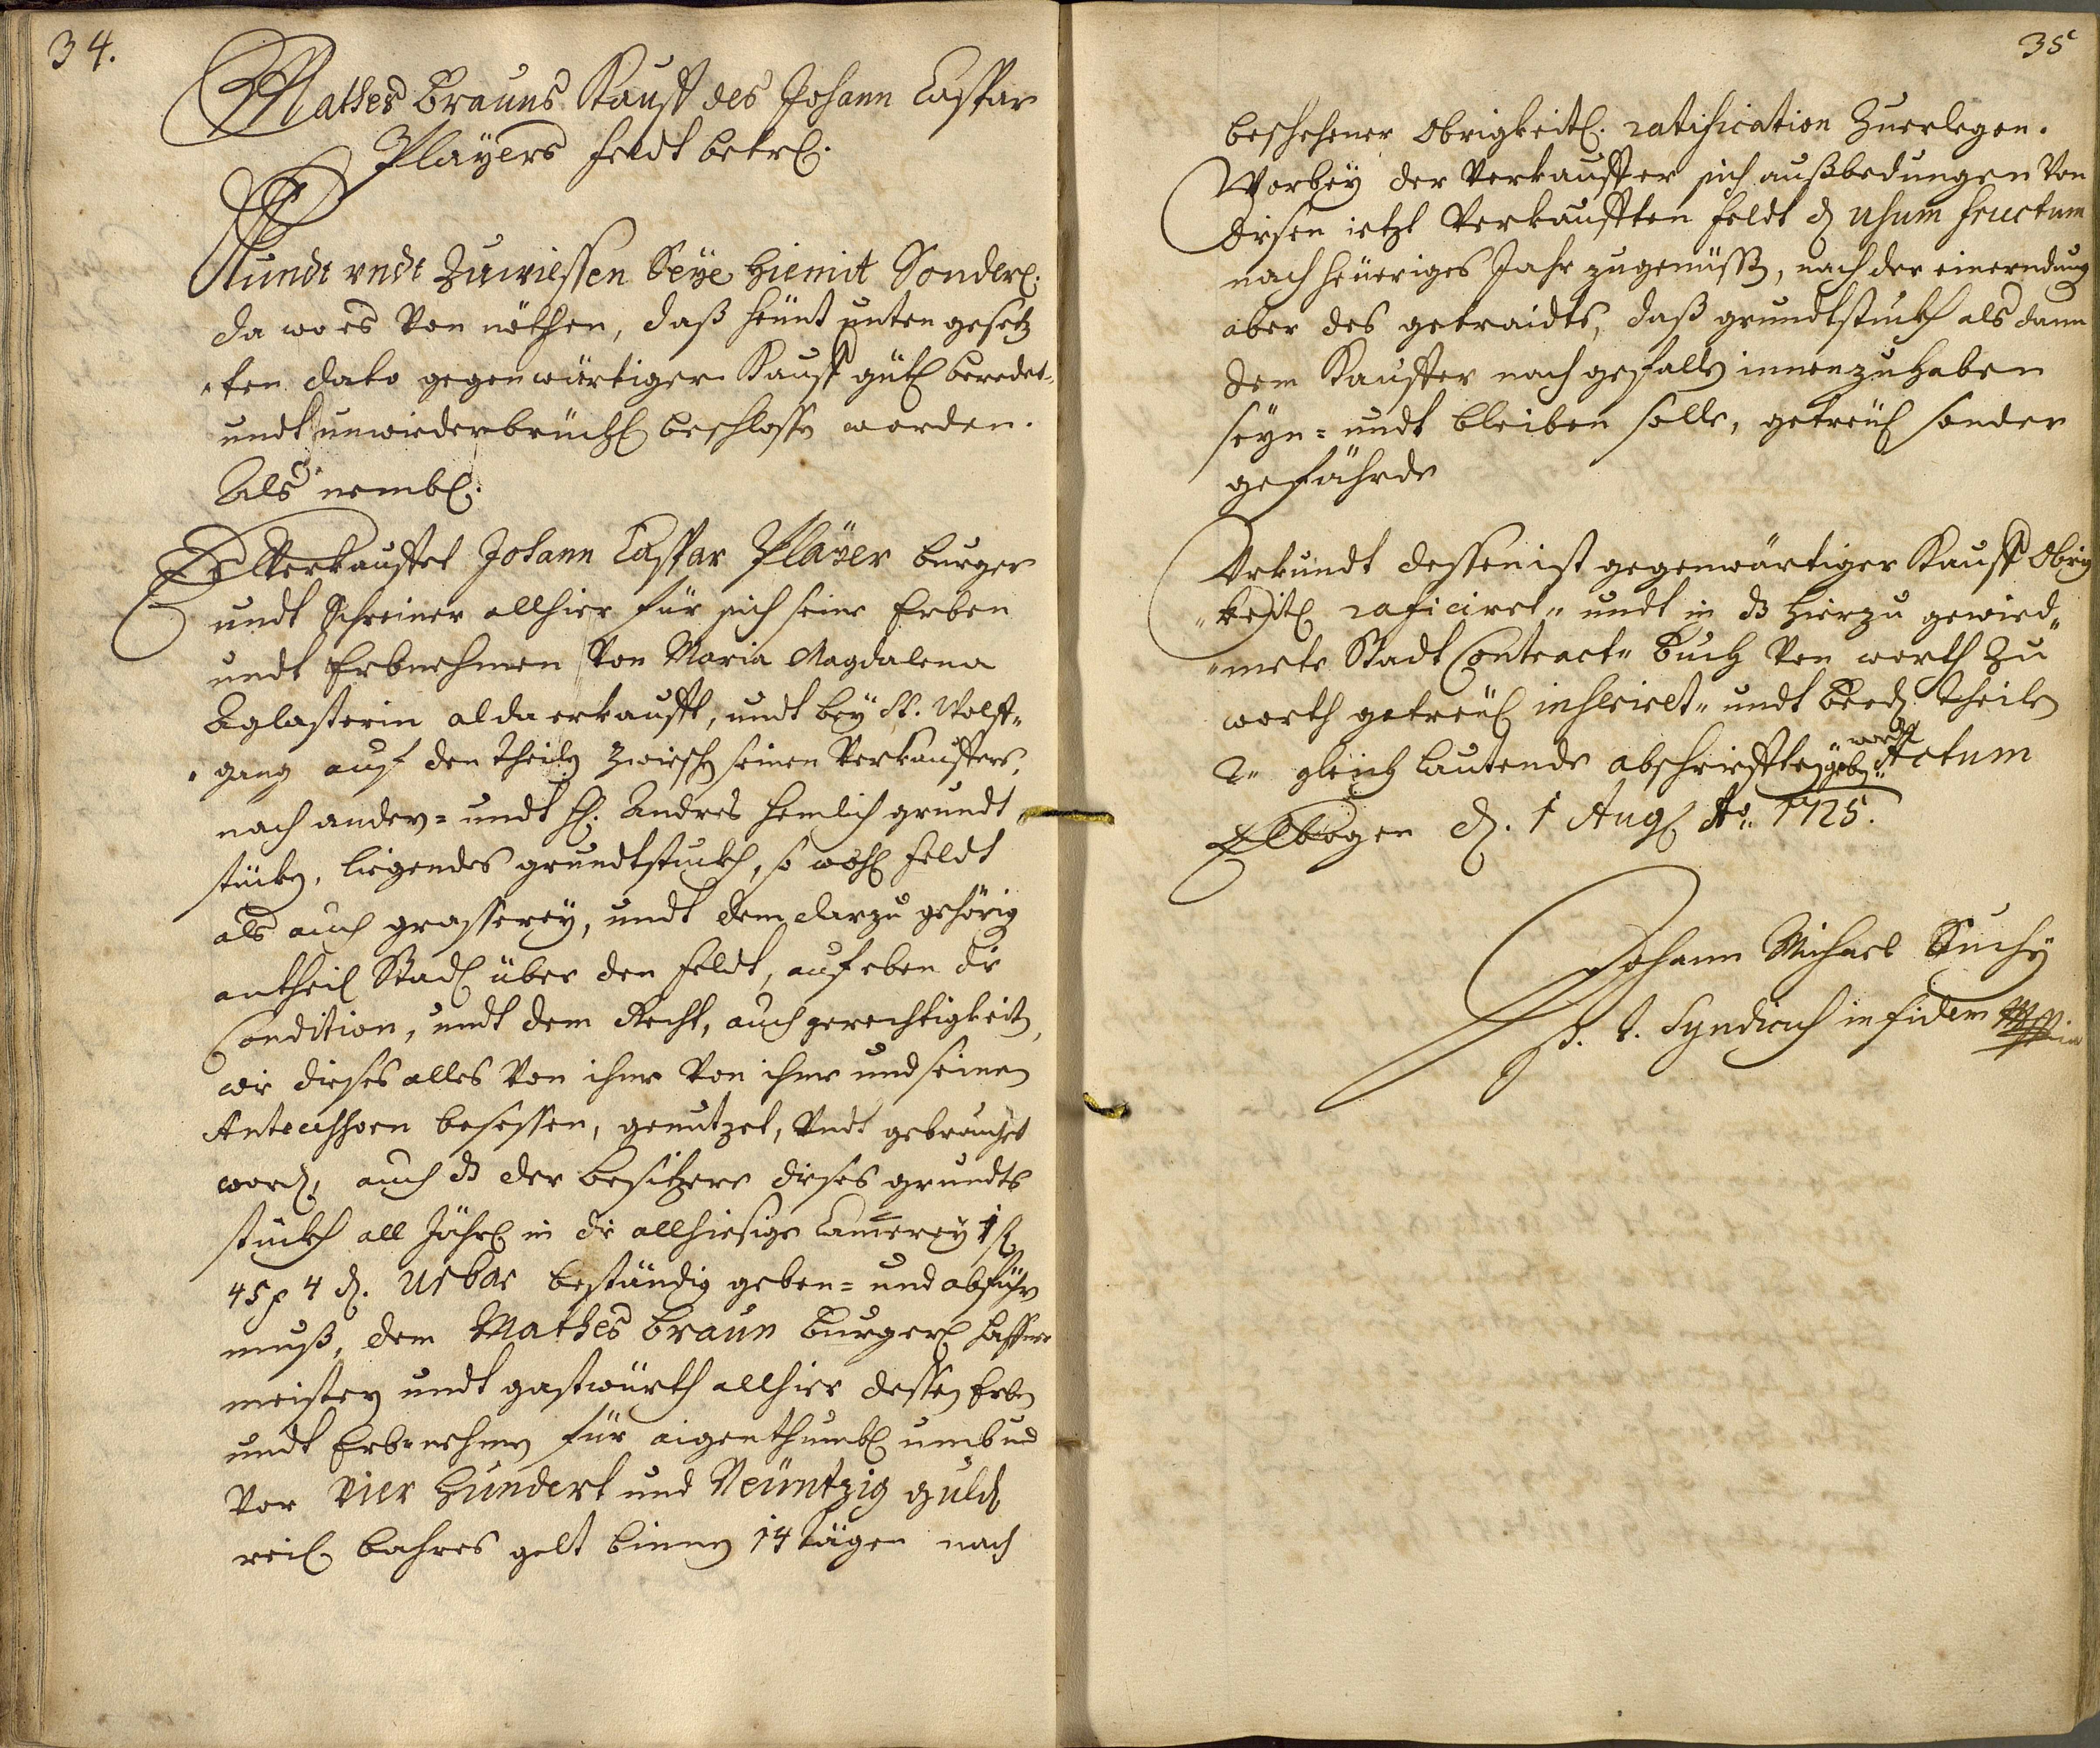 34.
Mathes Brauns Kauff des Johann Caspar
Pläyers feldt betrl:
Kundt vndt Zuwiessen Seÿe hiemit Sonderl:
da wo es von nöthen, daß heünt unten gesetz
ten dato gegenwärtiger Kauff gütl beredet
undt unwiederbrüchl beschlossen worden.
Als nembl:
Verkauffet Johann Caspar Pläyer burger
undt Schreiner allhier für sich seine Erben
undt Erbnehmen von Maria Magdalena
Aglasterin alda erkaufft, undt beÿ St. Wolff„
„gang auf den theiln zwischen seinen Verkauffers,
nach ander= undt H: Andres Hemlich grundt„
stücken, liegendes grundtstuckh, so wohl feldt
als auch grasserey, undt dem darzu gehörig
antheil Stadl über den feldt, auf eben die
Condition, undt dem Recht, auch gerechtigkeiten,
wie dieses alles von ihme von ihme und seinen
Antecessorn besessen, genutzet, vndt gebrauchet
worden, auch ds der besitzere dieses grundts
stuckh all Jährl in die allhiesige Cammerey 1 fl
45 x 4 d. Urbar beständig geben= und abführen
muß, dem Mathes Braun burgerl Haffner
meistern undt gastwürth allhier dessen Erben
undt Erbnehmen für aigenthumbl umb und
vor vier hundert und Neüntzig guld
reil. bahres gelt binnen 14 tägen nach
35
beschehener Obrigkeitl: ratification Zuerlegen.
Worbeÿ der Verkauffer sich außbedungen von
diesen ietzt verkaufften feldt d usum fructum
nach heüeriges Jahr zugenüssen, nach der einerndung
aber des getraidts, daß grundtstuckh alsdann
dem Kauffer nach gefallen innenzuhaben
seÿn= undt bleiben solle, getreül sonder
gefährde
Urkundt dessen ist gegenwärtiger Kauff Obrig
„keitl raficiret„ undt in ds hierzu gewied„
„mete Stadt Contract„ Buch von worth zu
worth getreül inseriret„ undt beeden theilen
2„ gleich lautende abschrifften geben„ worden Actum
Elbogen d. 1 Aug Ao. 1725.
Johann Michael Suchÿ
p. t. Syndicus in fidem Mppria